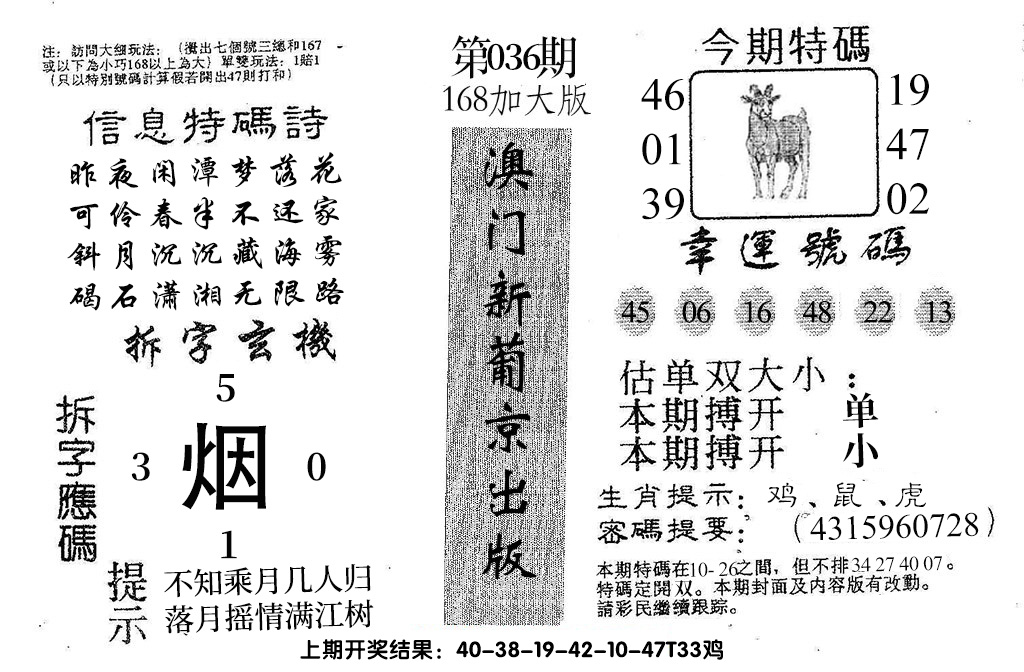 注：訪問大细玩法：（攪出七個號三總和167
或以下為小巧168以上為大）單雙玩法：1賠1
（只以特別號碼計算假若開出47則打和）
信息特碼詩
昨夜闲潭梦落花
可伶春半不还家
斜月沉沉藏海雾
碣石潇湘无限路
拆字玄機
拆字應碼
5
3 烟 0
1
提示
不知乘月几人归
落月摇情满江树
第036期
168加大版
澳门新葡京出版
今期特碼
46 19
01 47
39 02
幸運號碼
45 06 16 48 22 13
估单双大小：
本期搏开 单
本期搏开 小
生肖提示：鸡、鼠、虎
密碼提要：（4315960728）
本期特碼在10-26之間，但不排34 27 40 07。
特碼定開双。本期封面及内容版有改動。
請彩民繼續跟踪。
上期开奖结果：40-38-19-42-10-47T33鸡